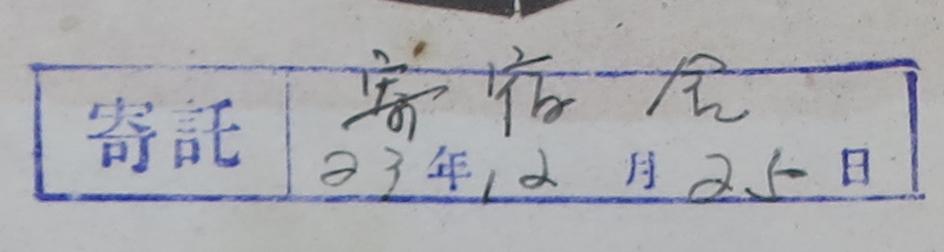 寄託 寄宿舍
23年12月25日